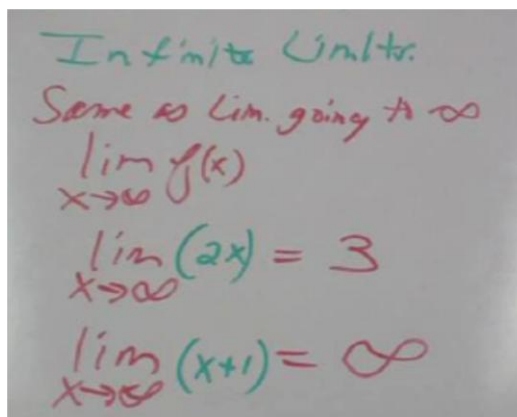 Infinite Limits.
Same as Lim. going to ∞
lim f(x)
x→∞
lim (2x) = 3
x→∞
lim (x+1) = ∞
x→∞